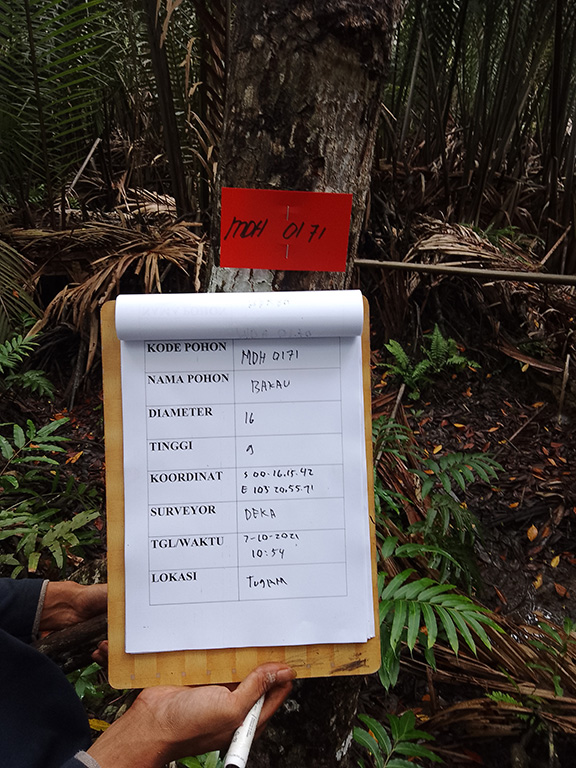 MDH 0171
KODE POHON MDH 0171
NAMA POHON BAKAU
DIAMETER 16
TINGGI 9
KOORDINAT S 00.16.15.42
E 103 20.55.71
SURVEYOR DEKA
TGL/WAKTU 7-10-2021
10:54
LOKASI